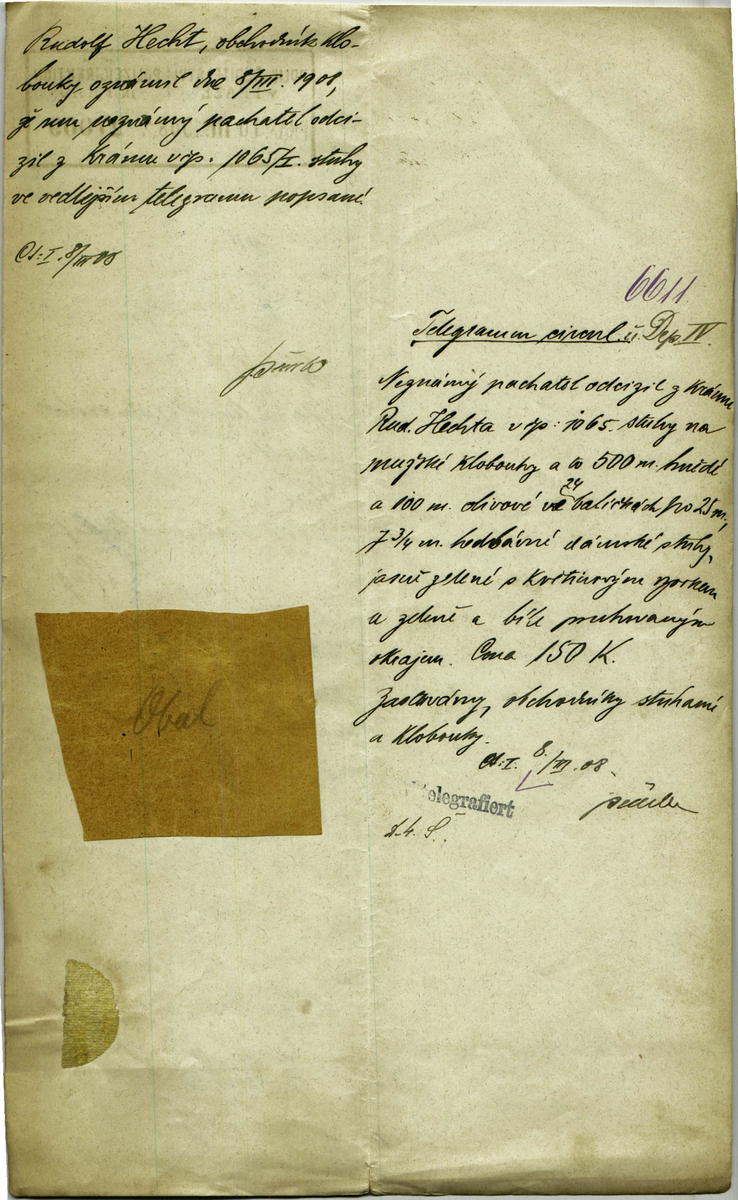 Rudolf Hecht, obchodník klo-
bouky oznámil dne 8/III. 1908,
že mu neznámý pachatel odci-
zil z krámu čp. 1065/I. stuhy
ve vedlejším telegramu popsané.
8/III 08
6611
Telegramm circul. Dep. IV.
Neznámý pachatel odcizil z krámu
Rud. Hechta v čp: 1065. stuhy na
mužské klobouky a to 500 m. hnědé
a 100 m. olivové ve 24 balíčkách po 25 m.,
7 3/4 m. hedbávné dámské stuhy,
jasně zelené s květinovým vzorkem
a zeleně a bíle pruhovaným
okrajem. Cena 150 K.
Zastavárny, obchodníky stuhami
a klobouky.
8/III. 08.
telegrafiert
Obal